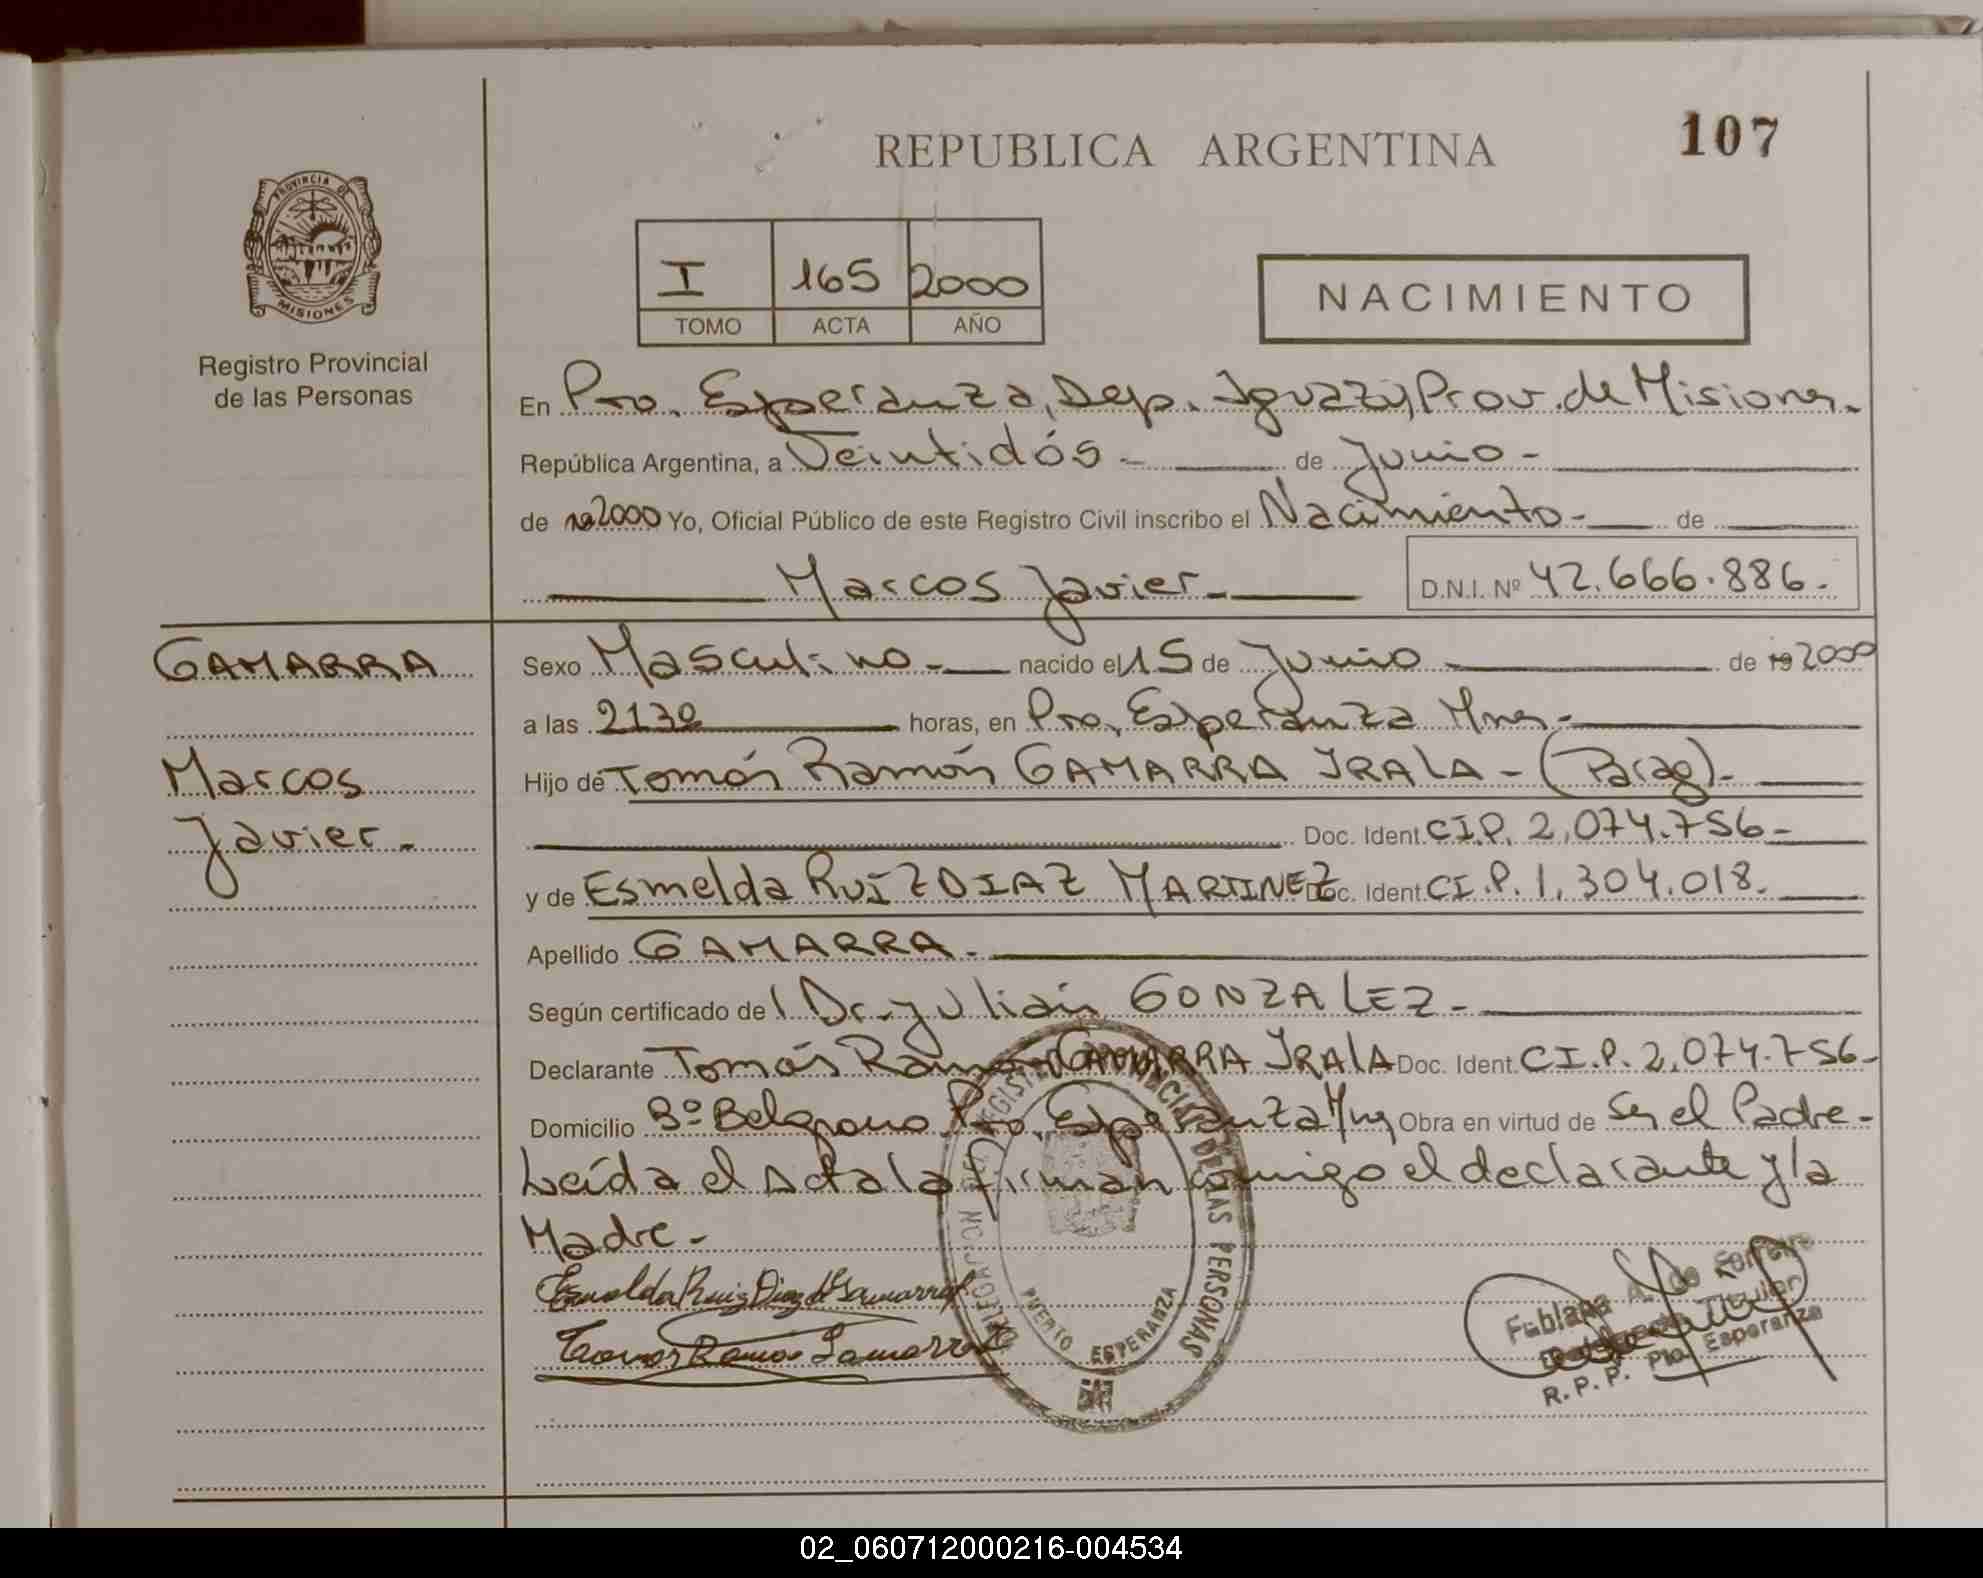 REPUBLICA ARGENTINA
107
PROVINCIA DE
MISIONES
Registro Provincial
de las Personas
I 165 2000
TOMO ACTA AÑO
NACIMIENTO
En Pto. Esperanza, Dep. Iguazú, Prov. de Misiones.
República Argentina, a Veintidós - de Junio -
de 19 2000 Yo, Oficial Público de este Registro Civil inscribo el Nacimiento - de
Marcos Javier - D.N.I. Nº 42.666.886.-
GAMARRA
Marcos
Javier.-
Sexo Masculino - nacido el 15 de Junio - de 19 2000
a las 2130 horas, en Pto. Esperanza Mnes -
Hijo de Tomás Ramón GAMARRA IRALA - (Parag)-
Doc. Ident. C.I.P. 2.074.756-
y de Esmelda RUIZ DIAZ MARTINEZ Doc. Ident. C.I.P. 1.304.018.
Apellido GAMARRA.-
Según certificado de l Dr. Julian GONZALEZ -
Declarante Tomás Ramon GAMARRA IRALA Doc. Ident. C.I.P. 2.074.756-
Domicilio Bº Belgrano Pto. Esperanza Mnes Obra en virtud de Ser el Padre -
Leída el Acta la firman conmigo el declarante y la
Madre -
Esmelda Ruiz Diaz de Gamarra
Ramon Gamarra
DE LAS PERSONAS
PUERTO ESPERANZA
Fabiana A. de Ferreira
Titular
R.P.P. Pto. Esperanza
02_060712000216-004534